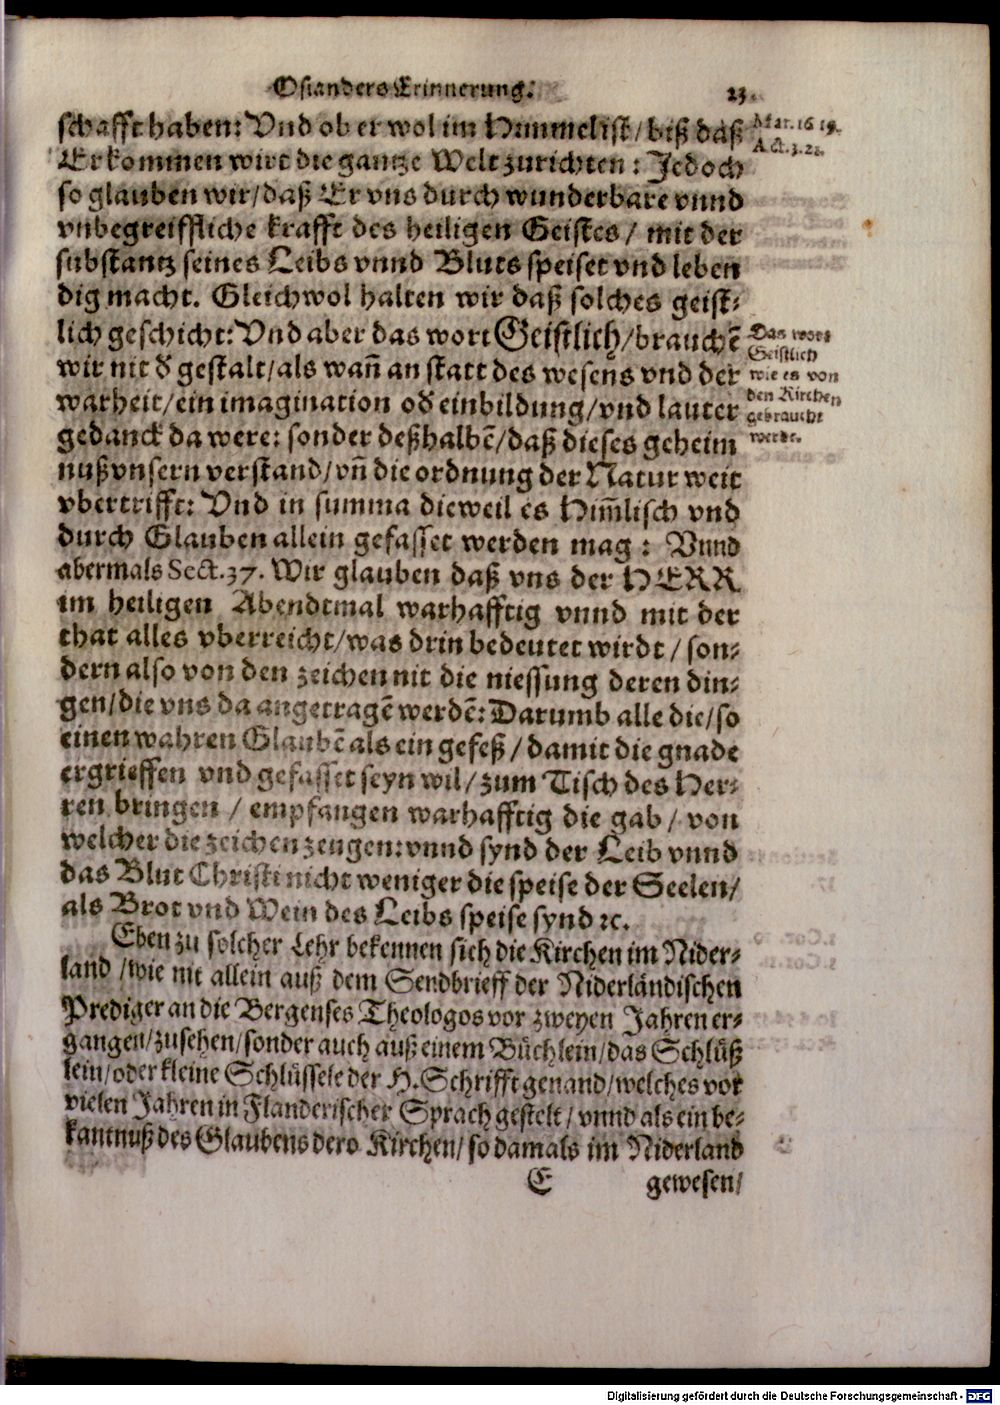 Osianders Erinnerung. 23.
schafft haben: Vnd ob er wol im Himmel ist/ biß daß
Er kommen wirt die gantze Welt zurichten: Jedoch
so glauben wir/ daß Er vns durch wunderbare vnnd
vnbegreiffliche krafft des heiligen Geistes/ mit der
substantz seines Leibs vnnd Bluts speiset vnd leben
dig macht. Gleichwol halten wir daß solches geist-
lich geschicht: Vnd aber das wort Geistlich/ brauchē
wir nit d' gestalt/ als wañ an statt des wesens vnd der
warheit/ ein imagination od' einbildung/ vnd lauter
gedanck da were: sonder deßhalbē/ daß dieses geheim
nuß vnsern verstand/ vñ die ordnung der Natur weit
vbertrifft: Vnd in summa dieweil es Him̄lisch vnd
durch Glauben allein gefasset werden mag: Vnnd
abermals Sect. 37. Wir glauben daß vns der HERR
im heiligen Abendtmal warhafftig vnnd mit der
that alles vberreicht/ was drin bedeutet wirdt/ son-
dern also von den zeichen nit die niessung deren din-
gen/ die vns da angetragē werdē: Darumb alle die/ so
einen wahren Glaubē als ein gefeß/ damit die gnade
ergrieffen vnd gefasset seyn wil/ zum Tisch des Her-
ren bringen/ empfangen warhafftig die gab/ von
welcher die zeichen zeugen: vnnd synd der Leib vnnd
das Blut Christi nicht weniger die speise der Seelen/
als Brot vnd Wein des Leibs speise synd ꝛc.
Eben zu solcher Lehr bekennen sich die Kirchen im Nider-
land/ wie nit allein auß dem Sendbrieff der Niderländischen
Prediger an die Bergenses Theologos vor zweyen Jahren er-
gangen/ zusehen/ sonder auch auß einem Büchlein/ das Schlüß
lein/ oder kleine Schlüssele der H. Schrifft genand/ welches vor
vielen Jahren in Flanderischer Sprach gestelt/ vnnd als ein be-
kantnuß des Glaubens dero Kirchen/ so damals im Niderland
E gewesen/
Mar. 16 19.
Act. 3. 21.
Das wort
Geistlich
wie es von
den Kirchen
gebraucht
werde.
Digitalisierung gefördert durch die Deutsche Forschungsgemeinschaft - DFG